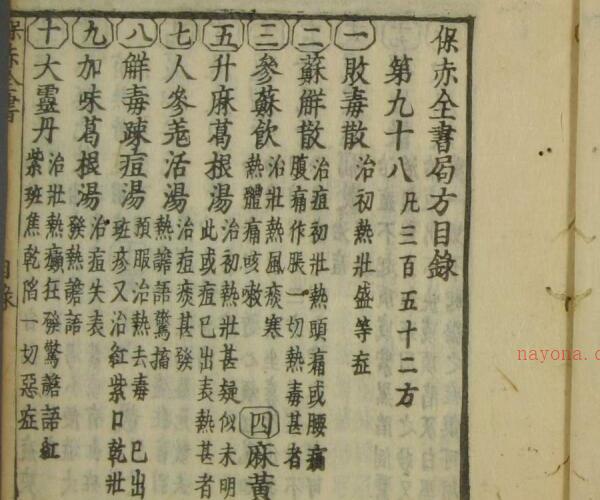 保赤全書局方目錄
第九十八 凡三百五十二方
一 敗毒散 治初熱壯盛等症
二 蘇解散 治痘初壯熱頭痛或腰痛
腹痛作脹一切熱毒甚者
三 參蘇飲 治壯熱風痰寒
熱體痛咳嗽
四 麻黃
五 升麻葛根湯 治初熱壯甚疑似未明
此或痘已出表熱甚者
七 人參羌活湯 治痘痰甚發
熱譫語驚搐
八 解毒踈痘湯 預服治熱去毒 已出
班疹又治紅紫口乾壯
九 加味葛根湯 治痘失表
發熱譫語
十 大靈丹 治壯熱癲狂發驚譫語紅
紫班焦乾陷一切惡症
保赤全書
目錄
nayona.c